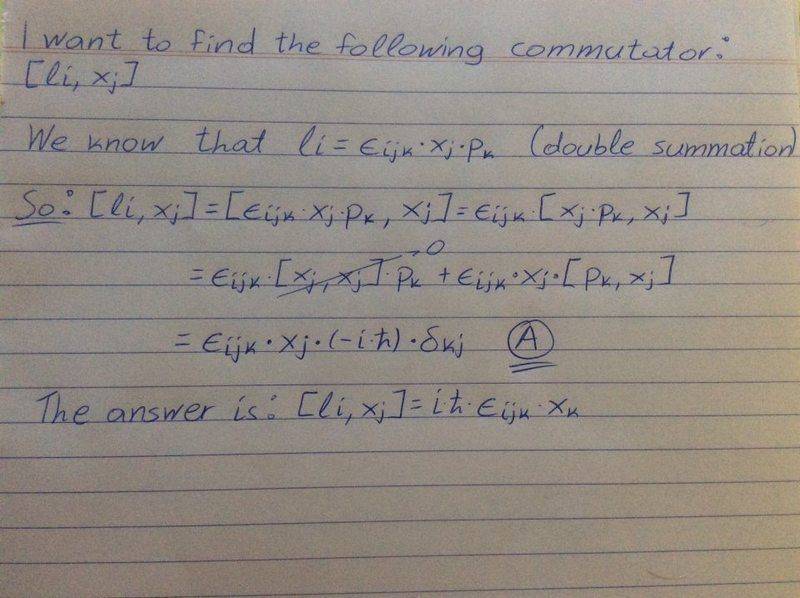 I want to find the following commutator:
[li, xj]
We know that li = ϵijk · xj · pk (double summation)
So: [li, xj] = [ϵijk · xj · pk, xj] = ϵijk · [xj · pk, xj]
= ϵijk · [xj, xj] · pk + ϵijk · xj · [pk, xj] 0
= ϵijk · xj · (-i·ħ) · δkj A
The answer is: [li, xj] = i·ħ · ϵijk · xk